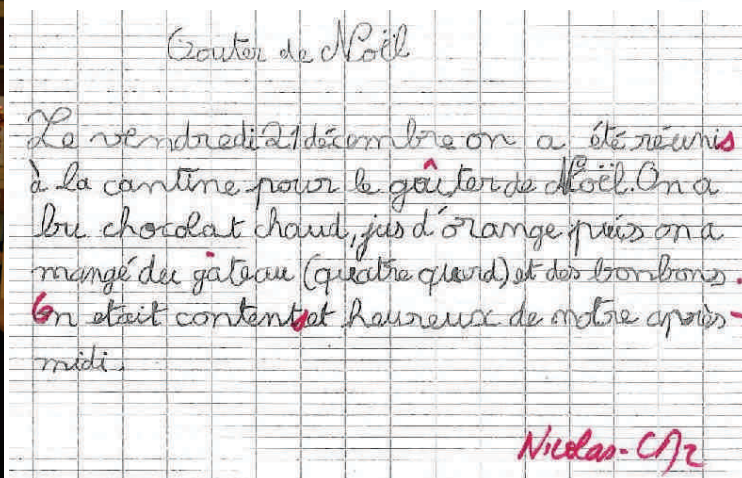 Gouter de Noël
Le vendredi 21 décembre on a été réunis
à la cantine pour le goûter de Noël. On a
bu chocolat chaud, jus d'orange puis on a
mangé du gâteau (quatre quard) et des bonbons.
On etait contents et heureux de notre après-
midi.
Nicolas-CM2